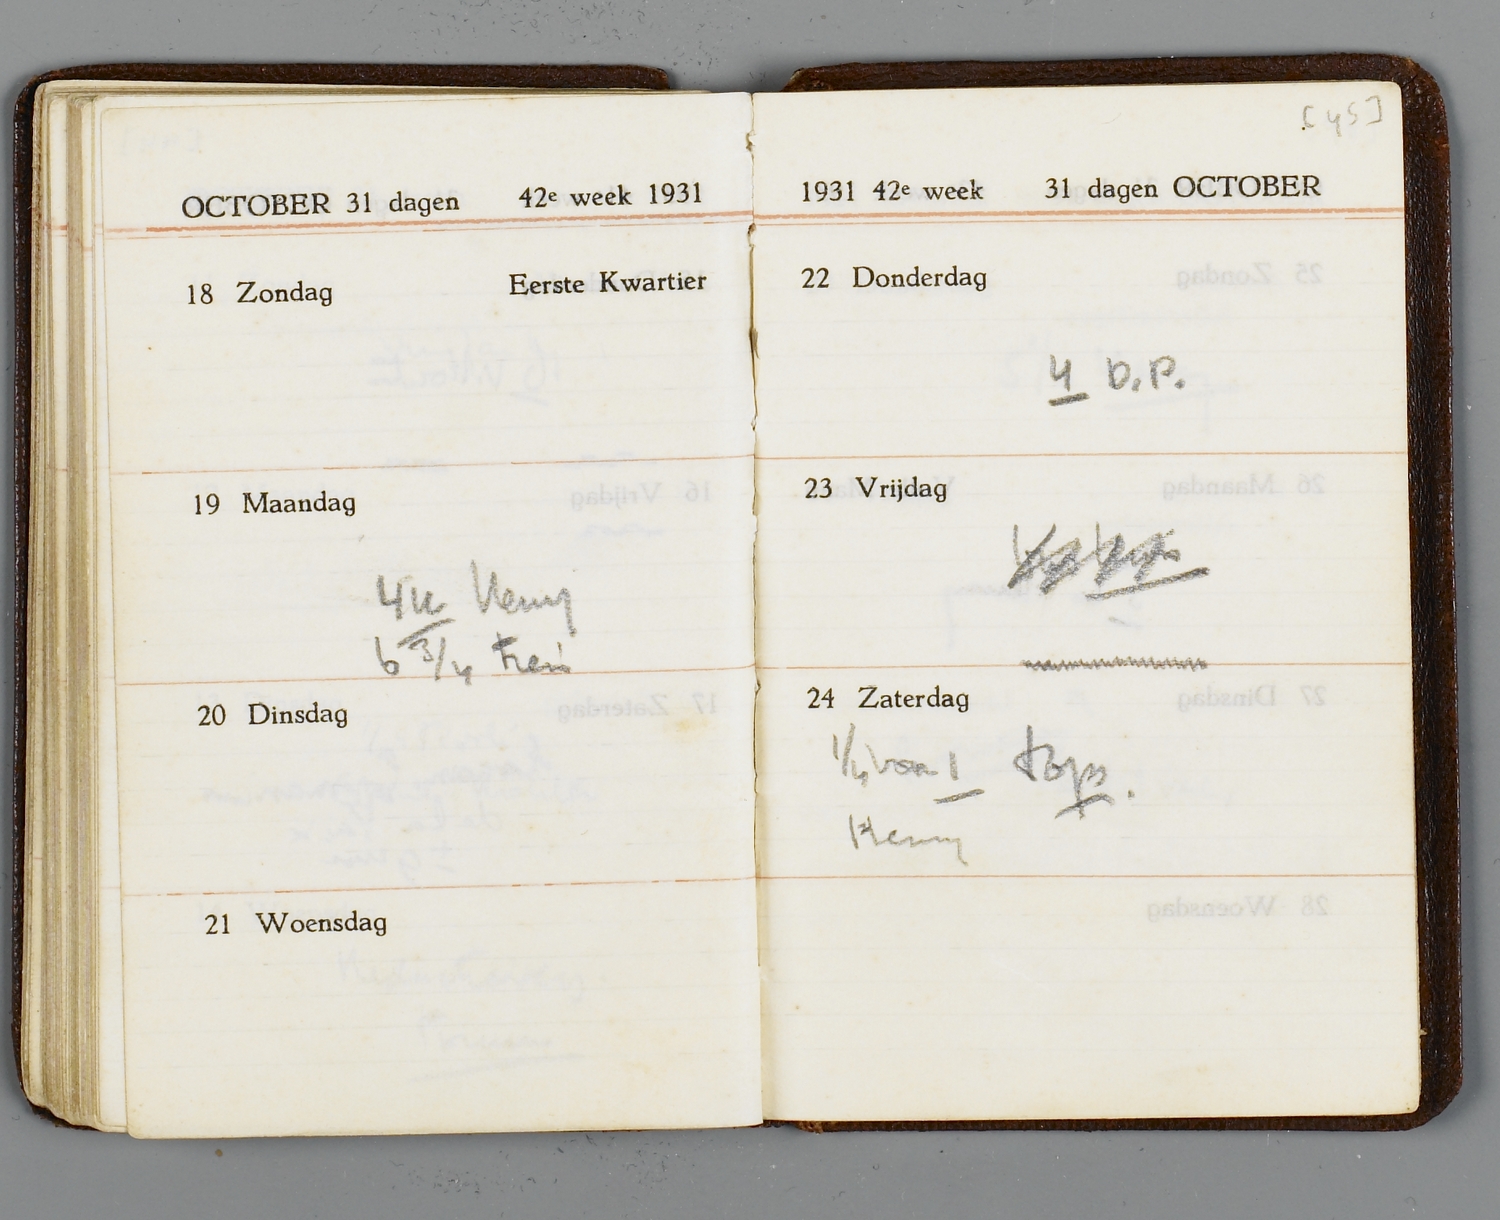 OCTOBER 31 dagen 42e week 1931
18 Zondag Eerste Kwartier
19 Maandag
4u Henny
6 3/4
20 Dinsdag
21 Woensdag
[45]
1931 42e week 31 dagen OCTOBER
22 Donderdag
4 D.P.
23 Vrijdag
24 Zaterdag
1/4 voor 1
Henny